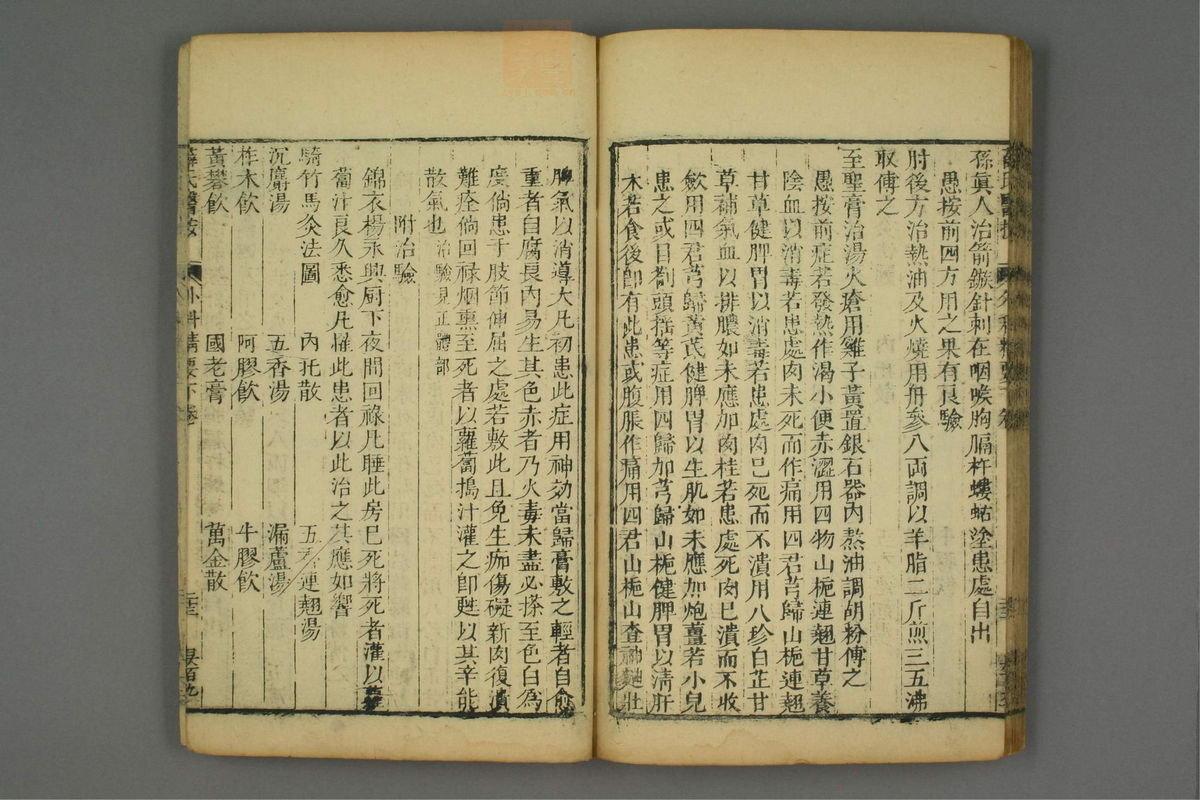 孫眞人治箭鏃針刺在咽喉胸膈杵螻蛄塗患處自出
愚按前四方用之果有良驗
肘後方治熱油及火燒用丹參八兩調以羊脂二斤煎三五沸
取傅之
至聖膏治湯火瘡用雞子黃置銀石器內熬油調胡粉傅之
愚按前症若發熱作渴小便赤澀用四物山梔連翹甘草養
陰血以消毒若患處肉未死而作痛用四君芎歸山梔連翹
甘草健脾胃以消毒若患處肉已死而不潰用八珍白芷甘
草補氣血以排膿如未應加肉桂若患處死肉已潰而不收
斂用四君芎歸黃芪健脾胃以生肌如未應加炮薑若小兒
患之或目劄頭搖等症用四歸加芎歸山梔健脾胃以清肝
木若食後即有此患或腹脹作痛用四君山梔山查神麯壯
脾氣以消導大凡初患此症用神効當歸膏敷之輕者自愈
重者自腐良肉易生其色赤者乃火毒未盡必搽至色白為
度倘患于肢節伸屈之處若敷此且免生痂傷礙新肉復潰
難痊倘回祿烟熏至死者以蘿蔔搗汁灌之即甦以其辛能
散氣也治驗見正體部
附治驗
錦衣楊永興厨下夜間回祿凡睡此房已死將死者灌以蘿
蔔汁良久悉愈凡罹此患者以此治之其應如響
騎竹馬灸法圖 內托散 五香連翹湯
沉麝湯 五香湯 漏蘆湯
柞木飲 阿膠飲 牛膠飲
黃礬飲 國老膏 萬金散
薛氏醫按 外科精要下卷